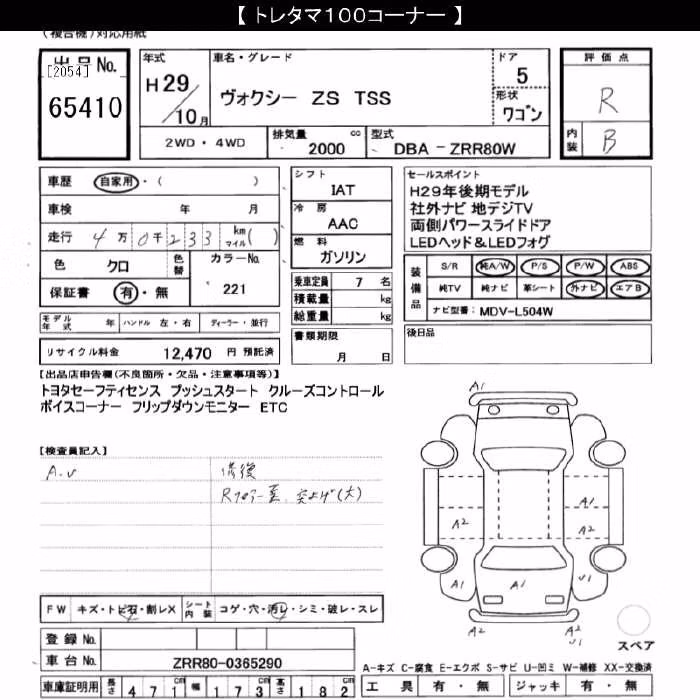 【トレタマ100コーナー】
(複合機)対応用紙
出品No.
[2054]
65410
年式
H29/10月
車名・グレード
ヴォクシー ZS TSS
ドア
5
形状
ワゴン
評価点
R
内装
B
2WD・4WD
排気量 cc
2000
型式
DBA-ZRR80W
車歴 自家用・( )
車検 年 月
走行 4万0千233 km マイル( )
色 クロ 色替
カラーNo.
221
保証書 有・無
シフト
IAT
冷房
AAC
燃料
ガソリン
乗車定員 7 名
積載量 kg
総重量 kg
書類期限
月 日
セールスポイント
H29年後期モデル
社外ナビ 地デジTV
両側パワースライドドア
LEDヘッド&LEDフォグ
装備品
S/R 純A/W P/S P/W ABS
純TV 純ナビ 革シート 外ナビ エアB
ナビ型番: MDV-L504W
後日品
モデル年式 年 ハンドル 左・右 ディーラー・並行
リサイクル料金 12,470 円 預託済
【出品店申告欄(不良箇所・欠品・注意事項等)】
トヨタセーフティセンス プッシュスタート クルーズコントロール
ボイスコーナー フリップダウンモニター ETC
【検査員記入】
A.U
修復
突上げ(大)
A1
A1
A2
A2
A1
A1
U1
A2
A2
U1
スペア
FW キズ・トビ石・割レX シート内装 コゲ・穴・汚レ・シミ・破レ・スレ
登録No.
車台No. ZRR80-0365290
車庫証明用 長さ 471cm 幅 173cm 高さ 182cm
A-キズ C-腐食 E-エクボ S-サビ U-凹ミ W-補修 XX-交換済
工具 有・無 ジャッキ 有・無